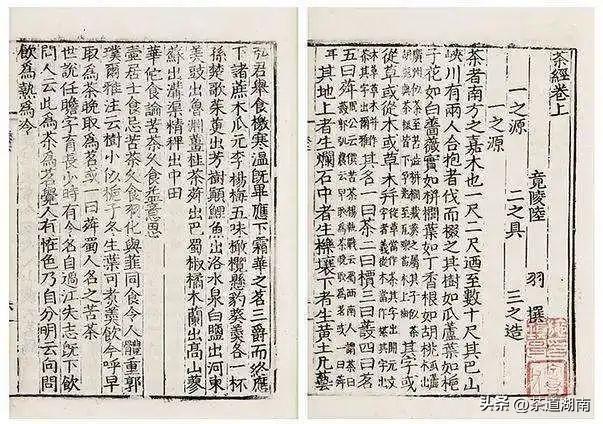 茶經卷上
竟陵陸 羽 撰
一之源 二之具 三之造
一之源
茶者南方之嘉木也一尺二尺迺至數十尺其巴山
峽川有兩人合抱者伐而掇之其樹如瓜蘆葉如梔
子花如白薔薇實如栟櫚葉如丁香根如胡桃瓜蘆
其字或
從草或從木或草木并
其名一曰茶二曰檟三曰蔎四曰茗
五曰荈
耳其地上者生爛石中者生櫟壤下者生黃土凡藝
弘君舉食檄寒溫既畢應下霜華之茗三爵而終應
下諸蔗木瓜元李楊梅五味橄欖懸豹葵羹各一杯
孫楚歌茱萸出芳樹顛鯉魚出洛水泉白鹽出河東
美豉出魯淵薑桂茶荈出巴蜀椒橘木蘭出高山蓼
蘇出溝渠精稗出中田
華佗食論苦茶久食益意思
壺居士食忌苦茶久食羽化與韭同食令人體重郭
璞爾雅注云樹小似梔子冬生葉可煮羹飲今呼早
取為茶晚取為茗或一曰荈蜀人名之苦茶
世說任瞻字育長少時有令名自過江失志既下飲
問人云此為茶為茗覺人有怪色乃自分明云向問
飲為熱為冷
头条 @茶道湖南